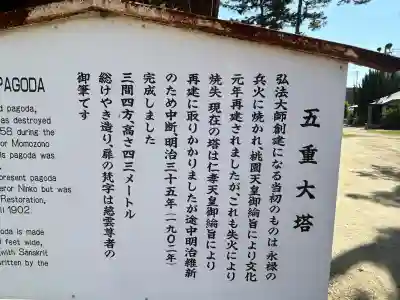 五重大塔
弘法大師創建になる当初のものは、永禄の
兵火に焼かれ、桃園天皇御綸旨により文化
元年再建されましたが、これも失火により
焼失、現在の塔は仁孝天皇御綸旨により
再建に取りかかりましたが途中明治維新
のため中断明治三十五年(一九〇二年)
完成しました
三間四方、高さ四三メートル
総けやき造り、扉の梵字は慈雲尊者の
御筆です
PAGODA
d pagoda,
as destroyed
58 during the
or Momozono
is pagoda was
present pagoda
eror Ninko but was
Restoration,
il 1902.
goda is made
feet wide,
with Sanskrit
written by the